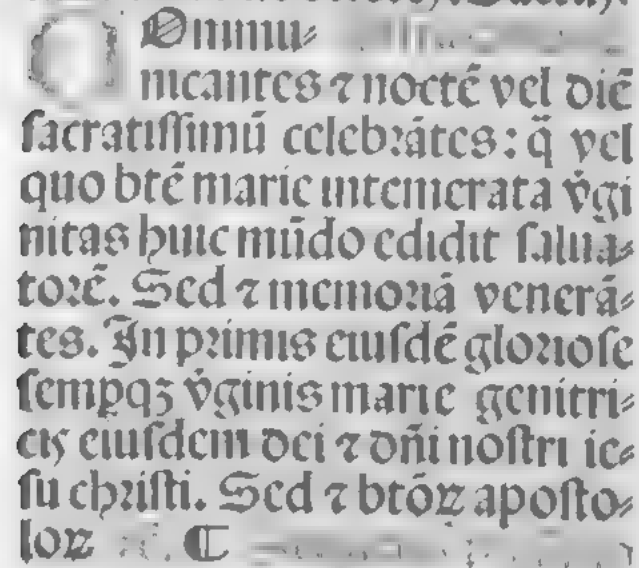 COmmu⸗
nicantes ⁊ noctē vel diē
sacratissimū celebrātes: q̄ vel
quo btē marie intemerata v̄gi
nitas huic mūdo edidit salua⸗
torē. Sed ⁊ memoriā venerā⸗
tes. In primis eiusdē gloriose
sempqꝫ v̄ginis marie genitri⸗
cis eiusdem dei ⁊ dn̄i nostri ie⸗
su christi. Sed ⁊ btōꝝ aposto⸗
loꝝ